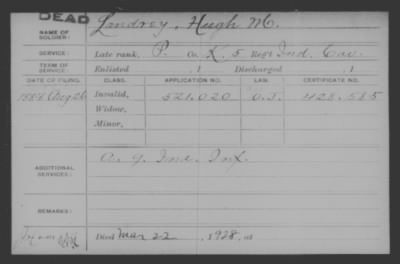 DEAD
NAME OF SOLDIER: Londrey, Hugh M.
SERVICE: Late rank, P. Co. K, 5 Reg't Ind. Cav.
TERM OF SERVICE: Enlisted , 1 Discharged , 1
DATE OF FILING. CLASS. APPLICATION NO. LAW. CERTIFICATE NO.
1884 Aug 26 Invalid, 521,020 O.J. 428,585
Widow,
Minor,
ADDITIONAL SERVICES: Ind. Inf.
REMARKS:
Died Mar 22, 1928, at